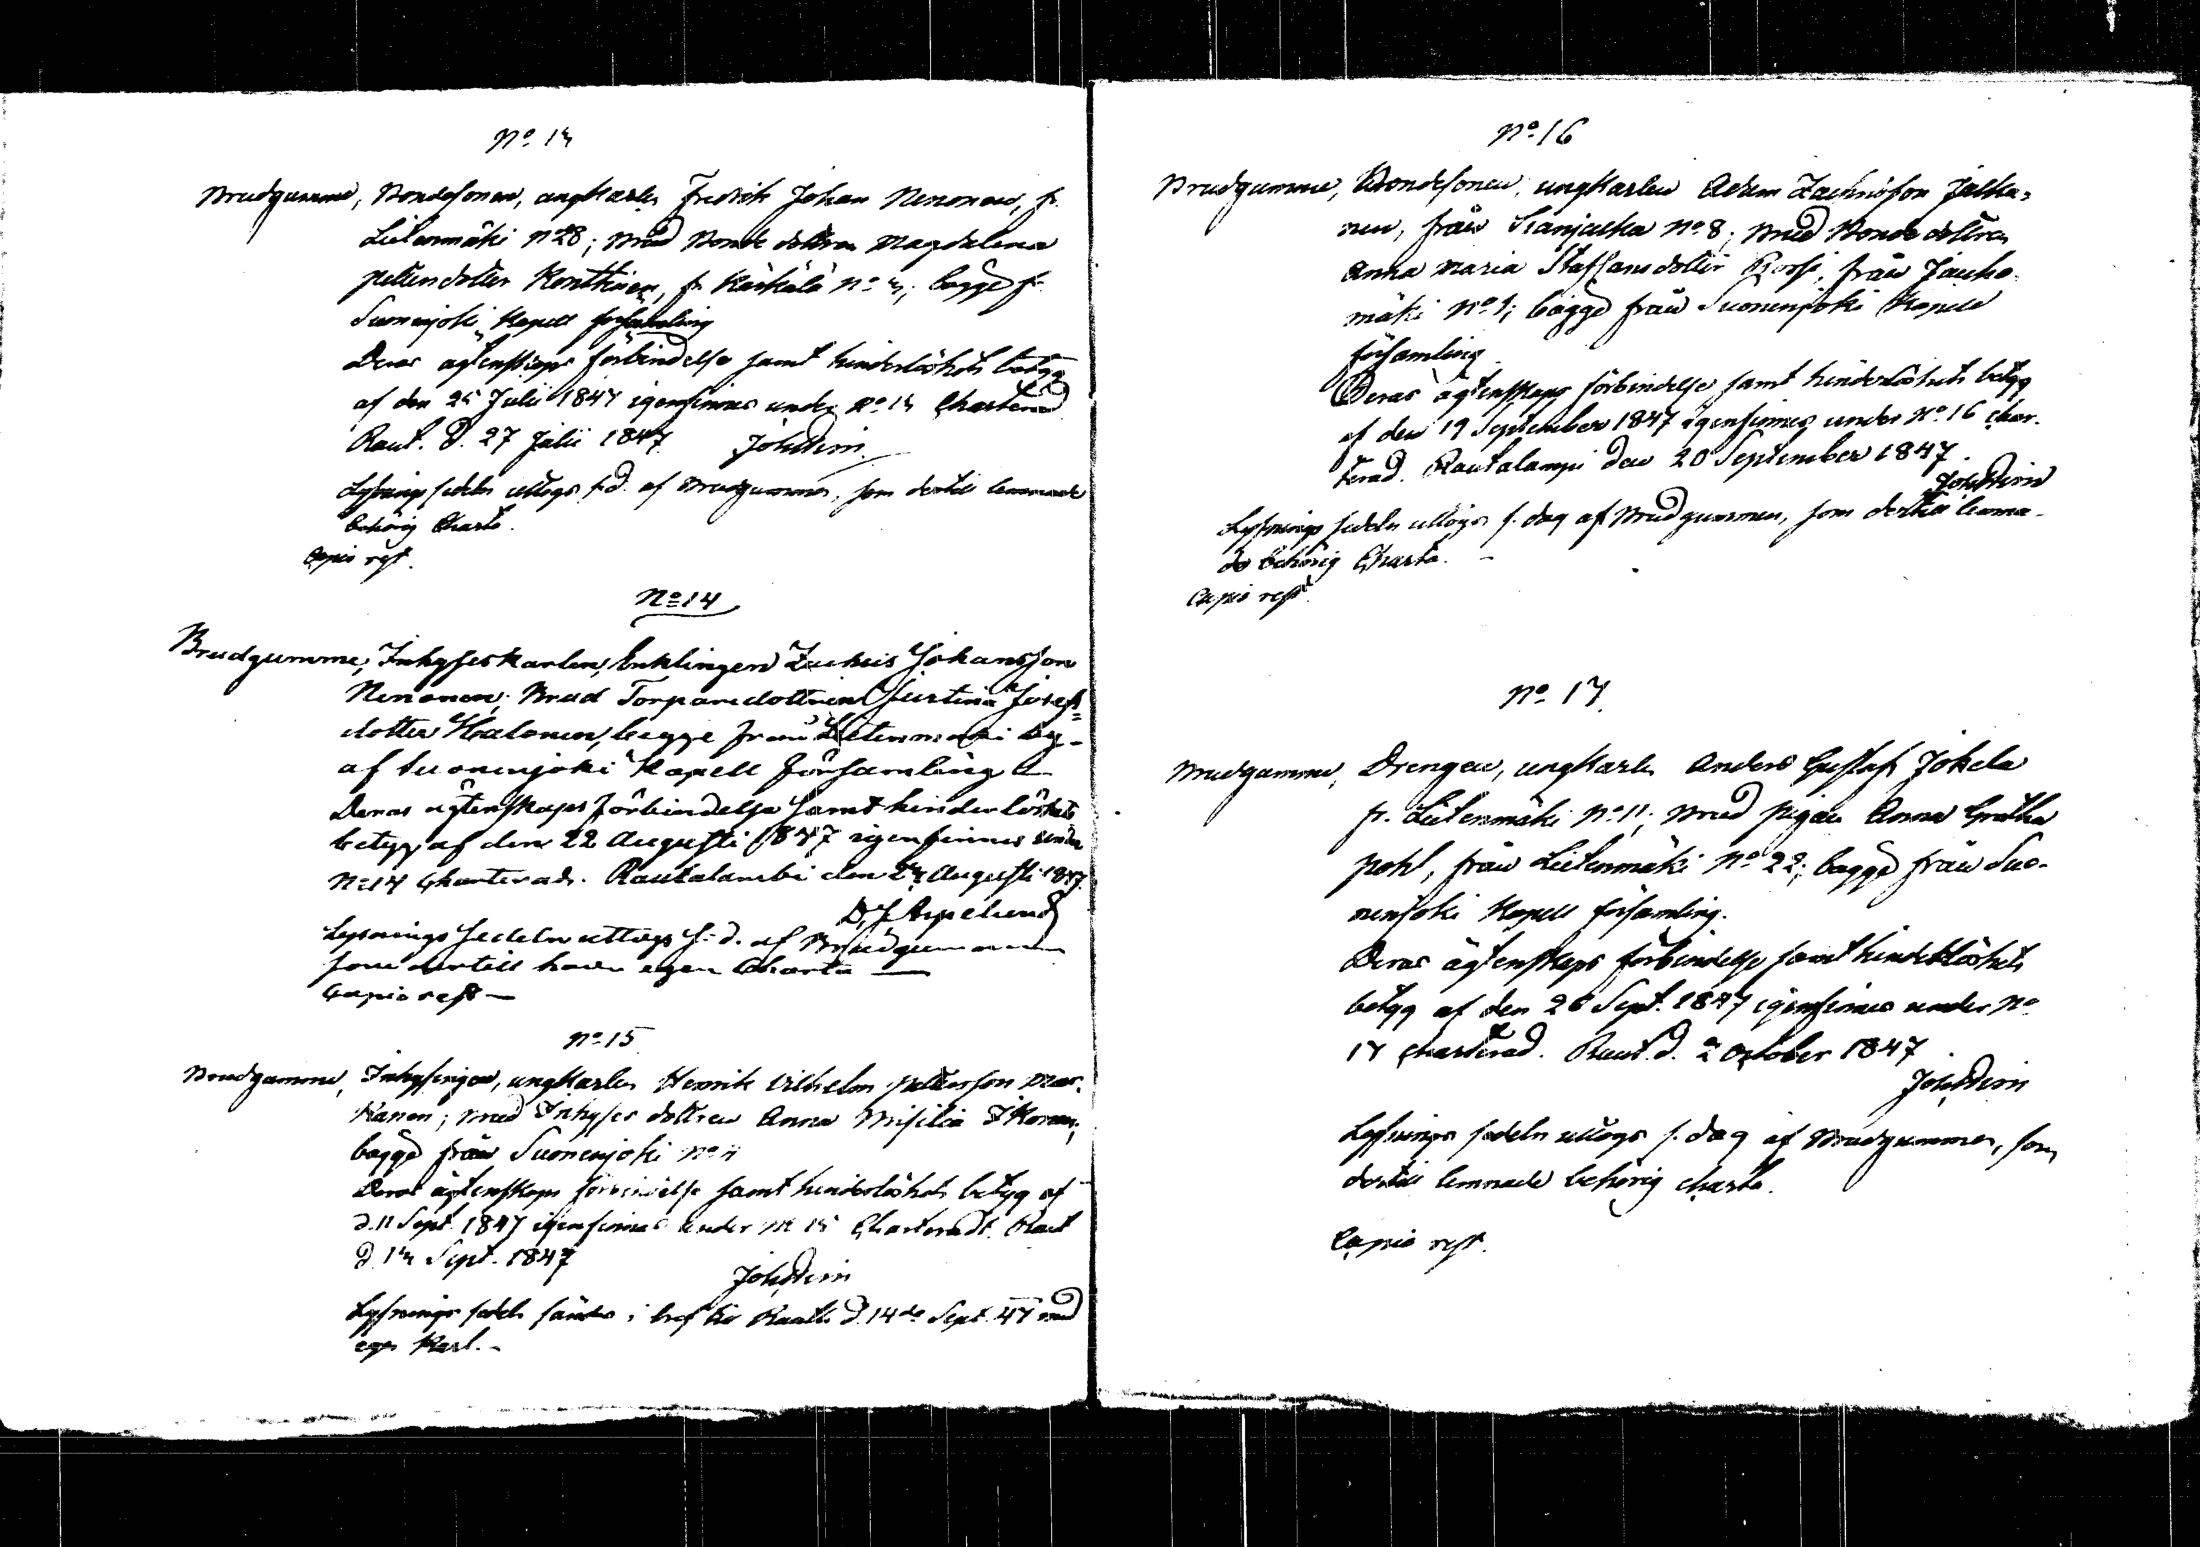 No 13
Brudgumme, Bondesonen, ungkarlen Fredrik Johan Nenonen, fr.
Lietenmäki No 28; Brud Bonde dottren Magdalena
Pettersdotter Konttinen, fr. Kärkälä No 3; bägge fr.
Suonenjoki Kapell församling
Deras ägtenskaps förbindelse samt hinderlöshets betyg
af den 25 Julii 1847 igenfinnes under No 13 Charterad.
Raut. d. 27 Julii 1847.
Lysnings sedeln uttogs s. d. af Brudgummen, som dertill lemnade
behörig Charta.
Copia rest.
No 14
Brudgumme, Inhyseskarlen, Enklingen Zachris Johansson
Nenonen; Brud Torparedottren Justina Josefs=
dotter Halonen, begge från Lietenmäki by
af Suonenjoki Kapell församling
Deras ägtenskaps förbindelse samt hinderlöshets
betyg af den 22 Augusti 1847 igenfinnes under
No 14 Charterad. Rautalambi den 24 Augusti 1847.
Lysnings sedeln uttogs s. d. af Brudgummen
som dertill hade egen Charta
Copia rest
No 15
Brudgumme, Inhysingen, ungkarlen Henrik Vilhelm Pettersson Mar-
kanen; Brud Inhyses dottren Anna Ikonen,
bägge från Suonenjoki No 4
Deras ägtenskaps förbindelse samt hinderlöshets betyg af
d. 11 Sept. 1847 igenfinnes under No 15 Charteradt. Raut
d. 13 Sept. 1847
Lysnings sedeln sändes i bref till d. 14de Sept. 47 med
egen Karl.
No 16
Brudgumme, Bondesonen, ungkarlen Adam Zachrisson Jalka=
nen, från Sianjalka No 8; Brud Bonde dottren
Anna Maria Staffansdotter Rossi, från Jauho-
mäki No 1; bägge från Suonenjoki Kapell
församling
Deras ägtenskaps förbindelse samt hinderlöshets betyg
af den 19 September 1847 igenfinnes under No 16 char-
terad. Rautalampi den 20 September 1847.
Lysnings sedeln uttogs s. dag af Brudgummen, som dertill lemna-
de behörig Charta.
Copia rest.
No 17.
Brudgumme, Drengen, ungkarlen Anders Gustaf Jokela
fr. Lietenmäki No 11; Brud pigan Anna Gretha
Pohl, från Lietenmäki No 22; bägge från Suo-
nenjoki Kapell församling.
Deras ägtenskaps förbindelse samt hinderlöshets
betyg af den 26 Sept. 1847 igenfinnes under No
17 charterad. Raut. d. 2 October 1847
Lysnings sedeln uttogs s. dag af Brudgummen, som
dertill lemnade behörig charta.
Copia rest.